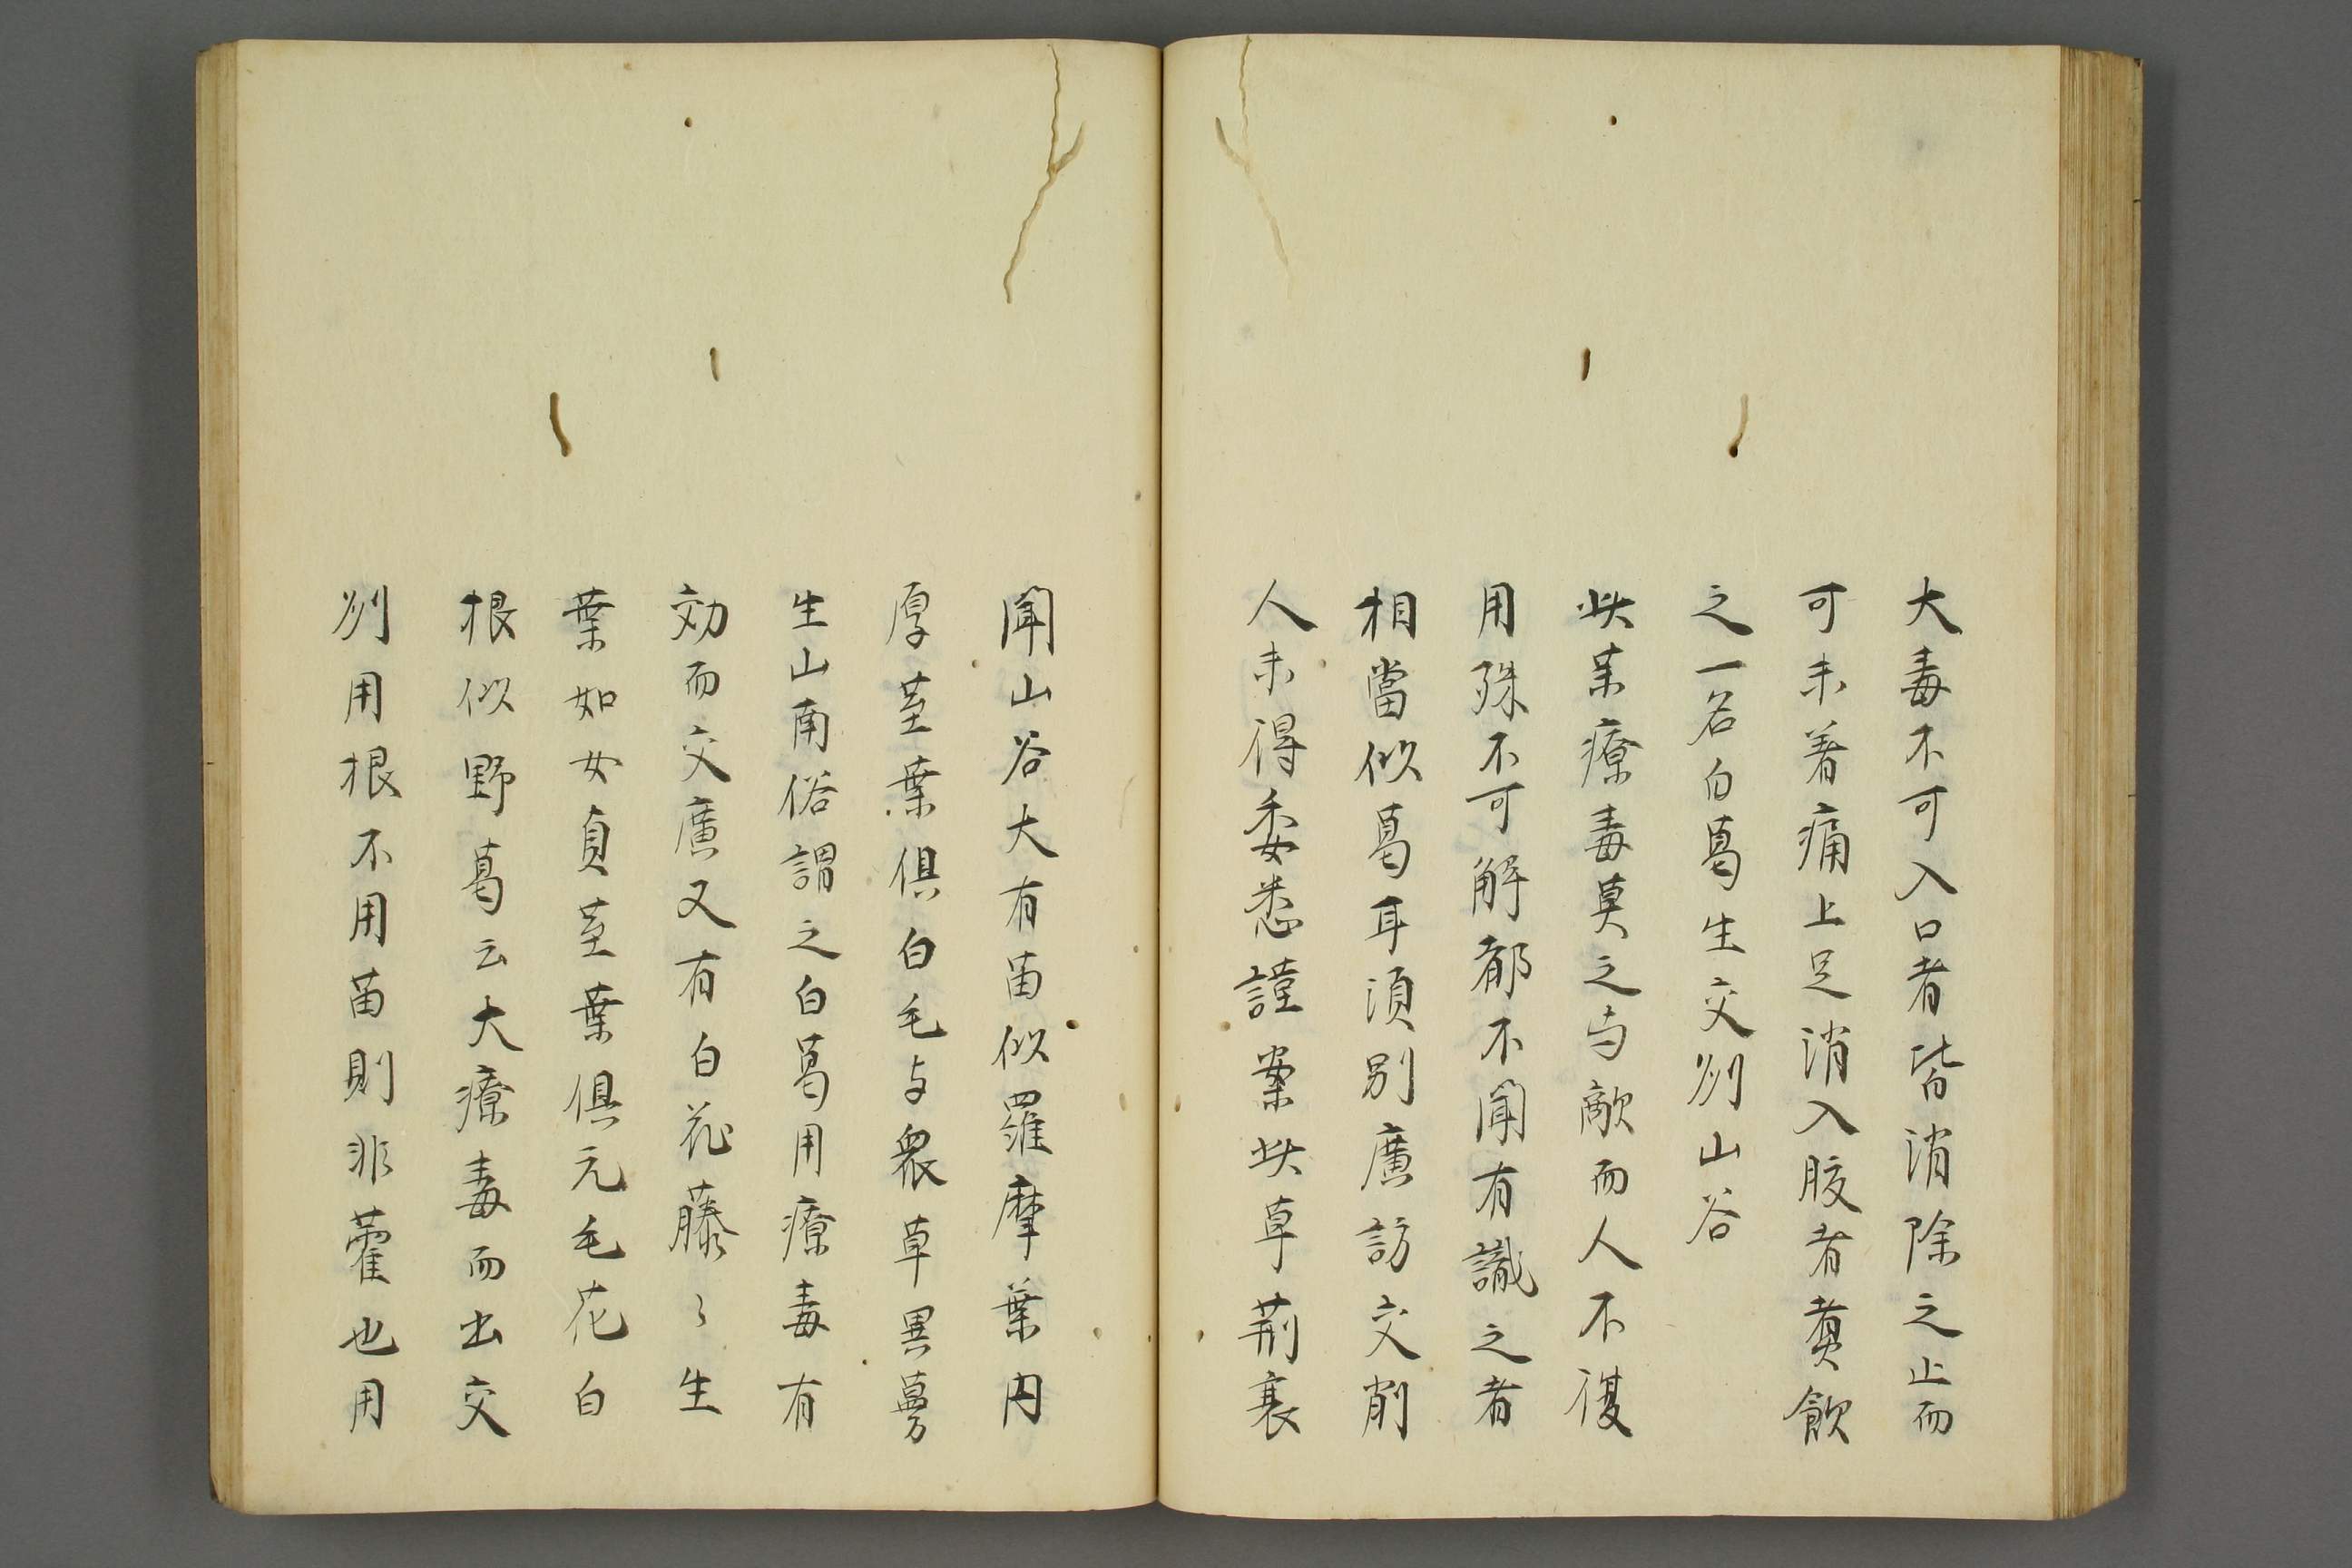 大毒不可入口者皆消除之止而
可末着痛上足消入腹者煑飲
之一名白葛生交州山谷
此葉療毒莫之与敵而人不復
用殊不可解都不聞有識之者
相當似葛耳須別廣訪交削
人未得委悉謹案此草荊襄
聞山谷大有苗似羅摩葉内
厚莖葉俱白毛与衆草異蔓
生山南俗謂之白葛用療毒有
効而交廣又有白花藤〻生
葉如女貞莖葉俱无毛花白
根似野葛云大療毒而出交
州用根不用苗則非藿也用